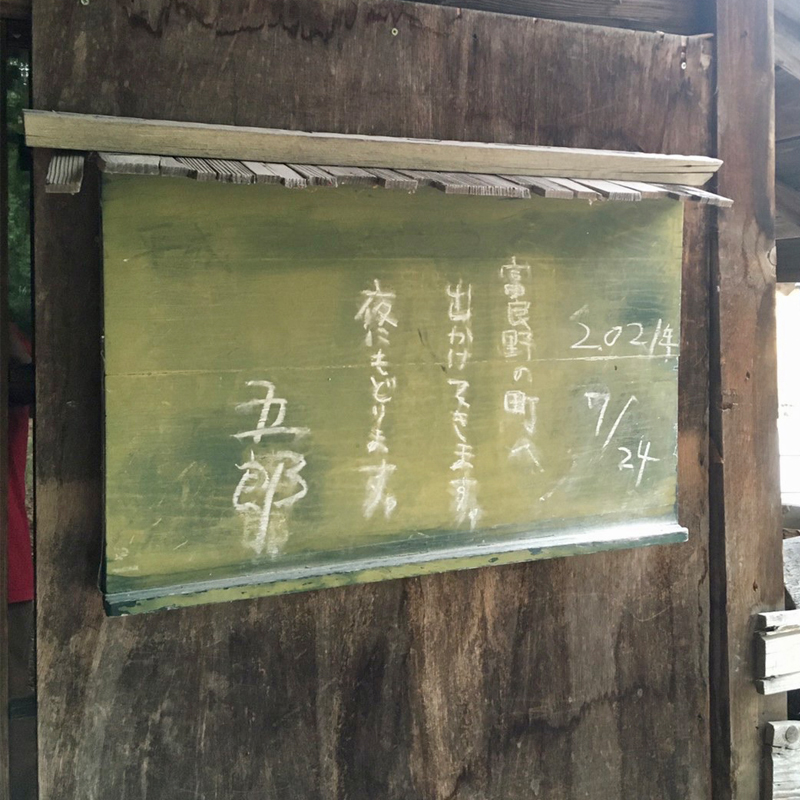 2021年
7/24
富良野の町へ
出かけてきます。
夜にもどります。
五郎